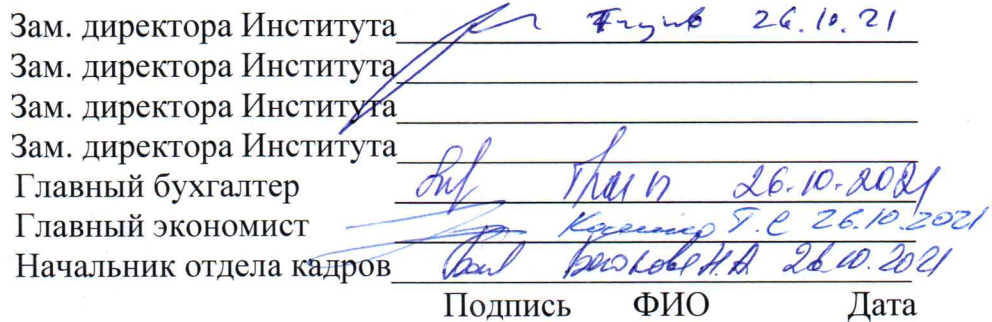 Зам. директора Института 26.10.21
Зам. директора Института
Зам. директора Института
Зам. директора Института
Главный бухгалтер 26.10.2021
Главный экономист Т.С 26.10.2021
Начальник отдела кадров Н.А. 26.10.2021
Подпись ФИО Дата